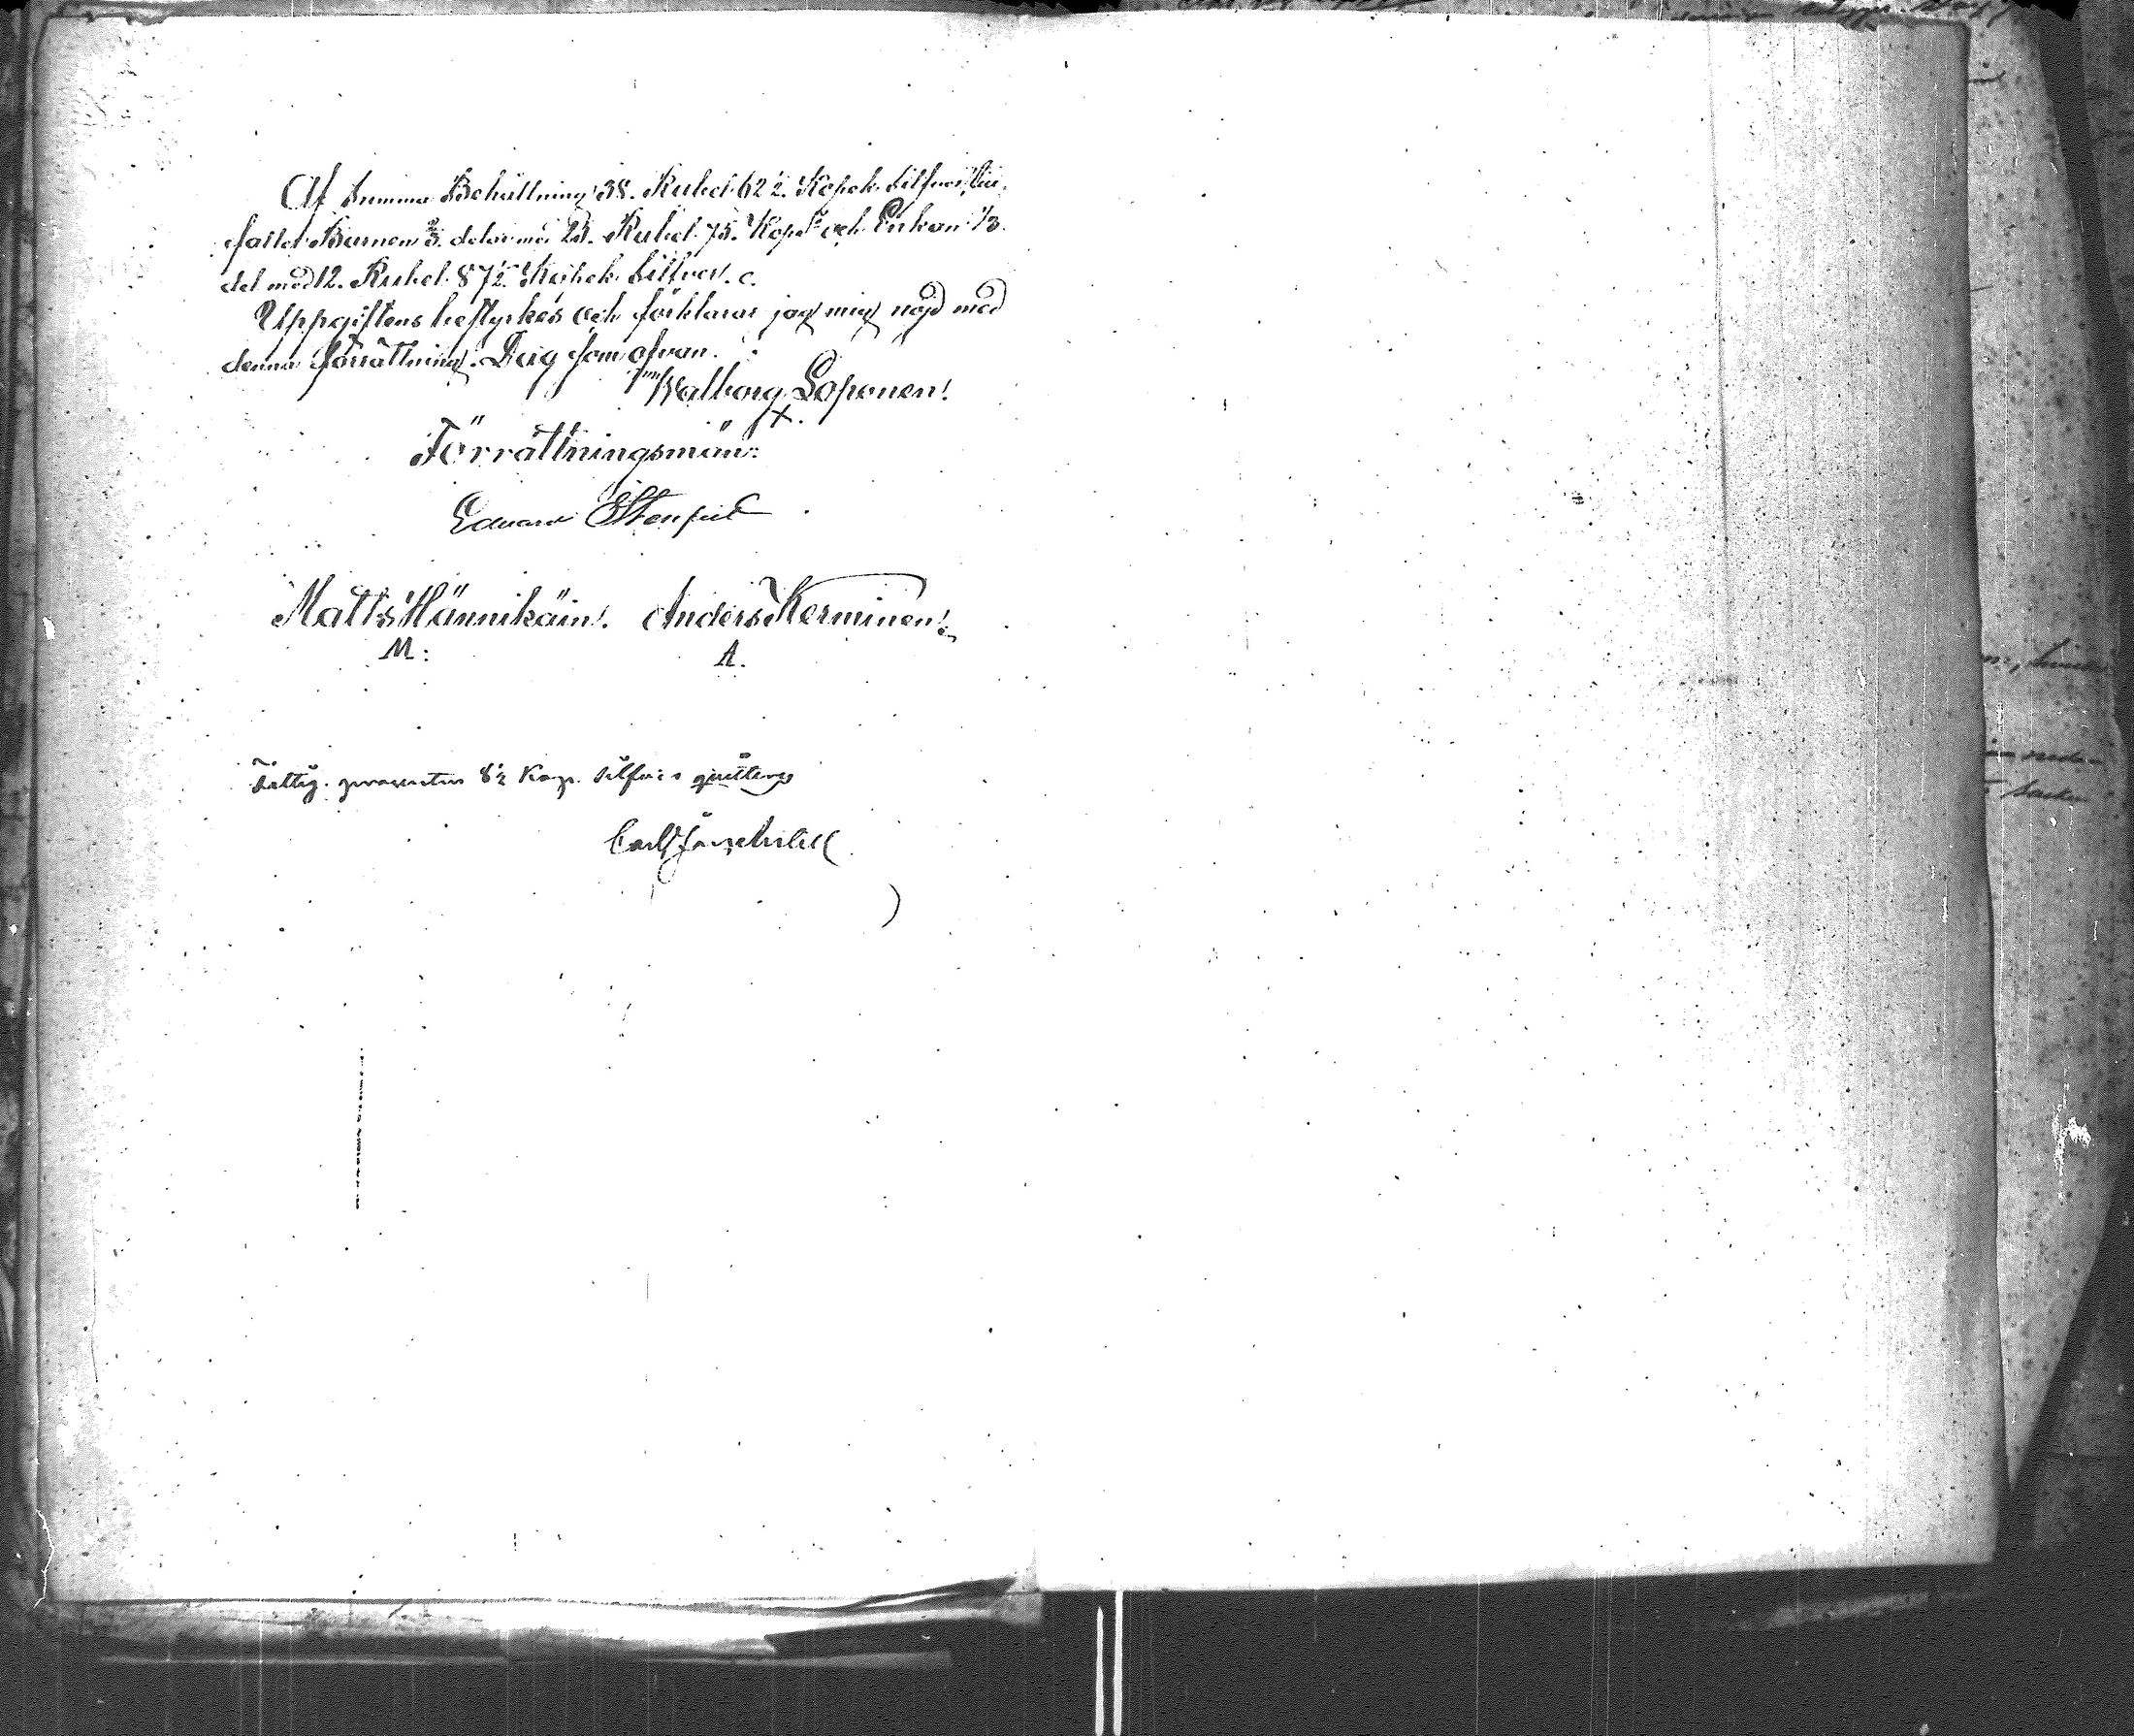 Af Summa Behållning 38. Rubel 62½. Kopek Silfver, til-
faller Barnen ⅔ delar med 25. Rubel 75. Kop. och Enkan 1/3
del med 12. Rubel 87½ Kopek Silfver.
Uppgiftens bestyrkes och förklarar jag mig nöjd med
denna förrättning. Dag som ofvan.
Walborg Loponen!
X.
Förrättningsmän:
Eduard
Matts Hännikäin! Anders Kerminen!
M: A.
Fattig. procenten 8½ Kop. silfver quitteras
Carl